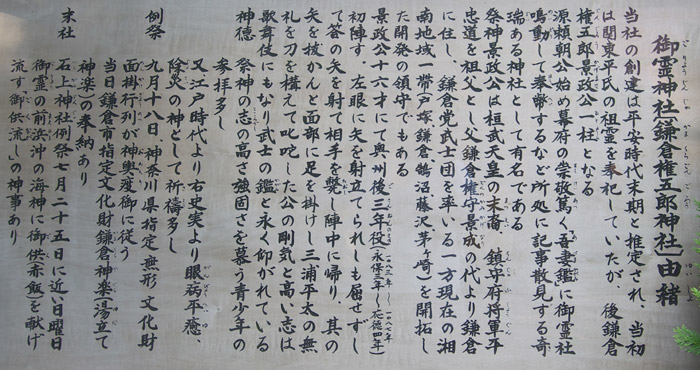 御霊神社(鎌倉権五郎神社)由緒
当社の創建は平安時代末期と推定され、当初
は関東平氏の祖霊を奉祀していたが、後鎌倉
権五郎景政公一柱となる
源頼朝公始め幕府の崇敬篤く「吾妻鑑」に御霊社
鳴動して奉幣するなど所処に記事散見する奇
瑞ある神社として有名である
祭神景政公は桓武天皇の末裔 鎮守府将軍平
忠道を祖父とし父鎌倉権守景成の代より鎌倉
に住し、鎌倉党武士団を率いる一方現在の湘
南地域一帯(戸塚鎌倉鵠沼藤沢茅ヶ崎)を開拓し
た開発の領守でもある
景政公十六才にて奥州後三年役(永保三年〜応徳四年)
初陣す、左眼に矢を射立てられしも屈せずし
て答の矢を射て相手を斃し陣中に帰り、其の
矢を抜かんと面部に足を掛けし三浦平太の無
礼を刀を構えて叱咤した公の剛気と高い志は
歌舞伎にもなり武士の鑑と永く仰がれている
神徳 祭神の志の高さ強固さを慕う青少年の
参拝多し
又江戸時代より右史実より眼病平癒、
除災の神として祈祷多し
例祭 九月十八日、神奈川県指定無形文化財
面掛行列が神輿渡御に従う
当日鎌倉市指定文化財鎌倉神楽(湯立て
神楽)の奉納あり
末社 石上神社例祭七月二十五日に近い日曜日
御霊の前浜沖の海神に御供(赤飯)を献げ
流す「御供流し」の神事あり